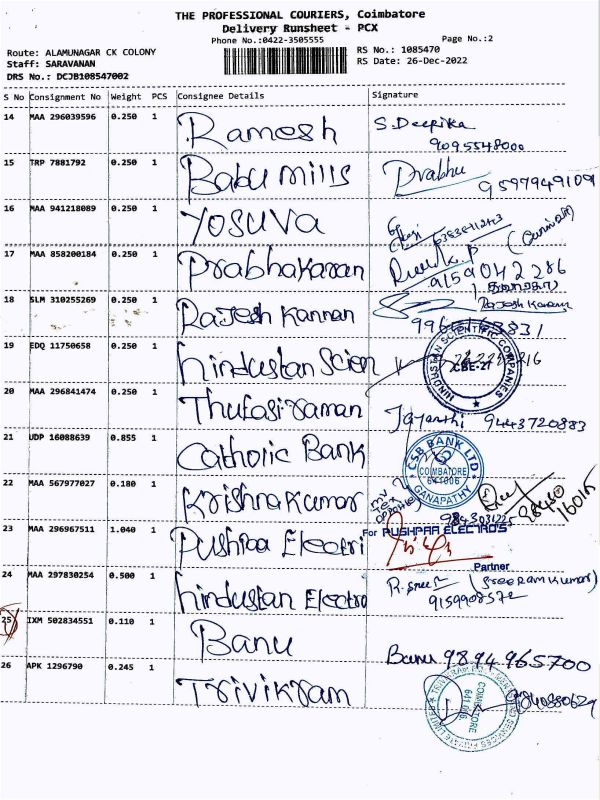 THE PROFESSIONAL COURIERS, Coimbatore
Delivery Runsheet - PCX
Phone No.:0422-3505555 Page No.:2
Route: ALAMUNAGAR CK COLONY RS No.: 1085470
Staff: SARAVANAN RS Date: 26-Dec-2022
DRS No.: DCJB108547002
S No Consignment No Weight PCS Consignee Details Signature
14 MAA 296039596 0.250 1 Ramesh S.Deepika
9095548000
15 TRP 7881792 0.250 1 Babu mills Prabhu
9597949109
16 MAA 941218089 0.250 1 Yosuva
17 MAA 858200184 0.250 1 Prabhakaran
9159042286
18 SLM 310255269 0.250 1 Rajesh Kannan Rajesh Kannan
19 EDQ 11750658 0.250 1 hindustan Scien
HINDUSTAN SCIENTIFIC COMPANIES
CBE-27
20 MAA 296841474 0.250 1 Thulasiraman Jayanthi 9443720883
21 UDP 16088639 0.855 1 Catholic Bank
CSB BANK LTD
COIMBATORE
641006
GANAPATHY
22 MAA 567977027 0.180 1 Krishna Kumar
9843031225
23 MAA 296967511 1.040 1 Pushpaa Electri
For PUSHPAA ELECTRO'S
Partner
24 MAA 297830254 0.500 1 hindustan Electro (Sreeram Kumar)
25 IXM 502834551 0.110 1 Banu Banu 9894965700
26 APK 1296790 0.245 1 Trivikram
COIMBATORE